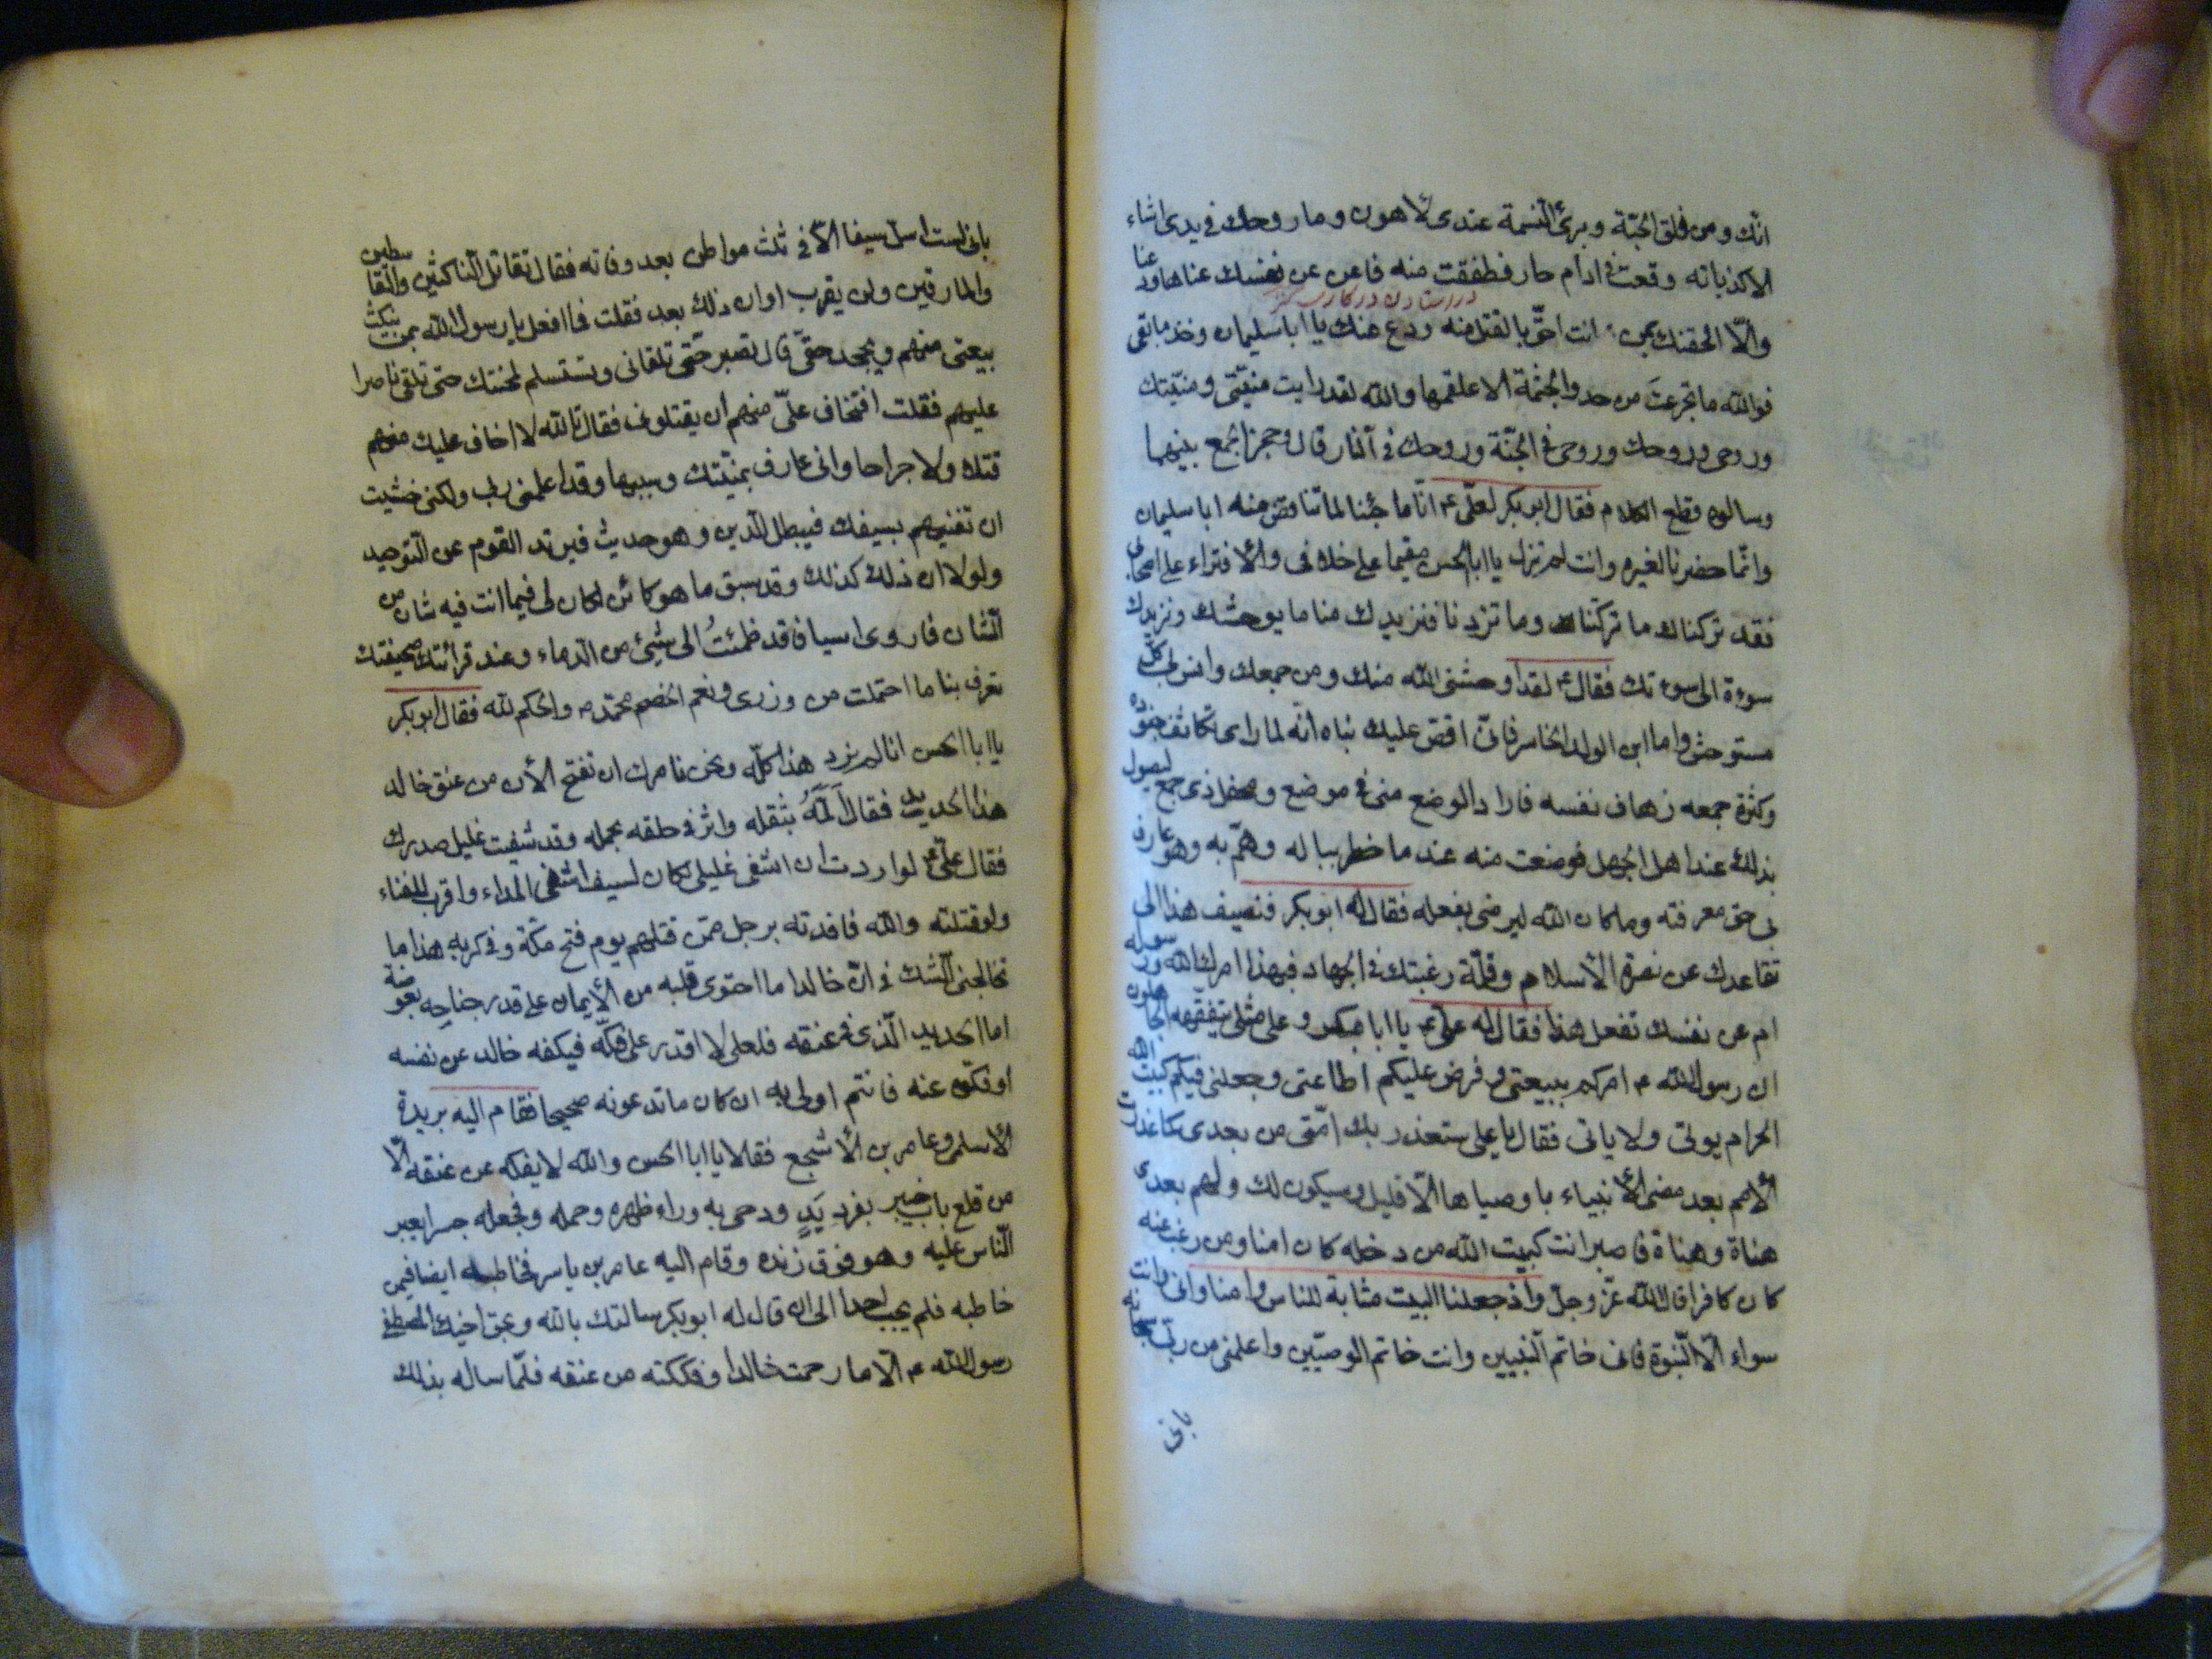 انّك ومن فلق الحبّة وبرئ النسمة عندى لأهون وما روحك فى يدى اشاء
الا كذبابة وقعت فى ادام حار فطفقت منه فاغن عن نفسك عناها ودعنا
والّا الحقتك بمن انت احقّ بالقتل منه ودع عنك يا ابا سليمان وخذ ما بقى
فوالله ما تجرعت من الا علقمها والله لقد رايت منيّتى ومنيّتك
وروحى وروحك وروحى فى الجنّة وروحك فى النار قال وحجز الجمع بينهما
وسالوه قطع الكلام فقال ابو بكر لعلّى ع انّا ما جئنا لما تناقض منه ابا سليمان
وانّما حضرنا لغيره وانت لم تزل يا ابا الحسن مقيما على خلافى والأفتراء على اصحابى
فقد تركناك ما تركتنا وما تزدنا فنزيدك منا ما يوحشك ونزيدك
سوءة الى سوءتك فقال ع لقد اوحشنى الله منك ومن جمعك وانس لى كلّ
مستوحش واما ابن الوليد الخاسر فانّى اقصّ عليك نباه انّه لما راى تكاثف جنوده
وكثرة جمعه زهاف نفسه فاراد الوضع منى فى موضع ومحفل ذى جمع ليصول
بذلك عند اهل الجهل فوضعت منه عند ما خطر بباله وهمّ به وهو عارف
بى حق معرفته وما كان الله ليرضى بفعله فقال له ابو بكر فنضيف هذا الى
تقاعدك عن نصرة الأسلام وقلّة رغبتك فى الجهاد فبهذا امرك الله ورسوله
ام عن نفسك تفعل هذا فقال له علّى ع يا ابا بكر وعلى مثلى يتفقه الجاهلون
ان رسول الله ص امركم ببيعتى وفرض عليكم اطاعتى وجعلنى فيكم كبيت الله
الحرام يوتى ولا ياتى فقال يا على ستغدر بك امّتى من بعدى كما غدرت
الأمم بعد مضى الأنبياء باوصياها الّا قليل وسيكون لك ولهم بعدى
هناة وهناة فاصبر انت كبيت الله من دخله كان امنا ومن رغب عنه
كان كافرا قال الله عزّ وجلّ واذ جعلنا البيت مثابة للناس وامنا وانى وانت
سواء الّا النّبوة فانى خاتم النّبيين وانت خاتم الوصيّين واعلمنى من ربّى سبحانه
بانى
بانى لست اسلّ سيفا الّا فى ثلث مواطن بعد وفاته فقال تقاتل النّاكثين والقاسطين
والمارقين ولن يقرب اوان ذلك بعد فقلت فما افعل يا رسول الله بمن ينكث
بيعتى منهم ويجحد حقّى قال تصبر حتّى تلقانى وتستسلم لمحنتك حتى تلقى ناصرا
عليهم فقلت افتخاف علىّ منهم ان يقتلونى فقال تالله لا اخاف عليك منهم
قتلا ولا جراحا وانى عارف بمنيّتك وسببها وقد اعلمنى ربى ولكنى خشيت
ان تفنيهم بسيفك فيبطل الّدين وهو حديث فيرتد القوم عن التّوحيد
ولولا ان ذلك كذلك وقد سبق ما هو كائن لكان لى فيما انت فيه شان من
الشان فاروى اسيافا قد ظمئت الى شئ من الّدماء وعند قرائتك صحيفتك
تعرف بنا ما احتملت من وزرى ونعم الخصم محمّد ص والحكم لله فقال ابو بكر
يا ابا الحسن انا لم نرد هذا كلّه ونحن نامرك ان تفتح الأن من عنق خالد
هذا الحديد فقال المه بثقله واثر فى حلقه بحمله وقد شفيت غليل صدرك
فقال علىّ ع لو اردت ان اشفى غليلى لكان لسيف اشفى للداء واقرب للفناء
ولو قتلته والله فما قدته برجل ممّن قتلهم يوم فتح مكة وفى كربه هذا ما
تخالجنى الشّك فى انّ خالدا ما احتوى قلبه من الأيمان على قدر جناحه بعوضة
اما الحديد الّذى فى عنقه فلعلى لا اقدر على فكّه فيكفه خالد عن نفسه
او فكّوه عنه فانتم اولى به ان كان ما تدعونه صحيحا فقام اليه بريدة
الأسلمى وعامر بن الأشجع فقالا يا ابا الحسن والله لا يفكه عن عنقه الّا
من قلع باب خيبر بفرد يدٍ ودحى به وراء ظهره وحمله وفجعله جسرا يعبر
النّاس عليه وهو فوق زنده وقام اليه عامر بن ياسر فخاطبه ايضا فيمن
خاطبه فلم يجب احدا الى ان قال له ابو بكر سالتك بالله وبحق اخيك المصطفى
رسول الله ص الّا ما رحمت خالدا وفككته من عنقه فلمّا ساله بذلك